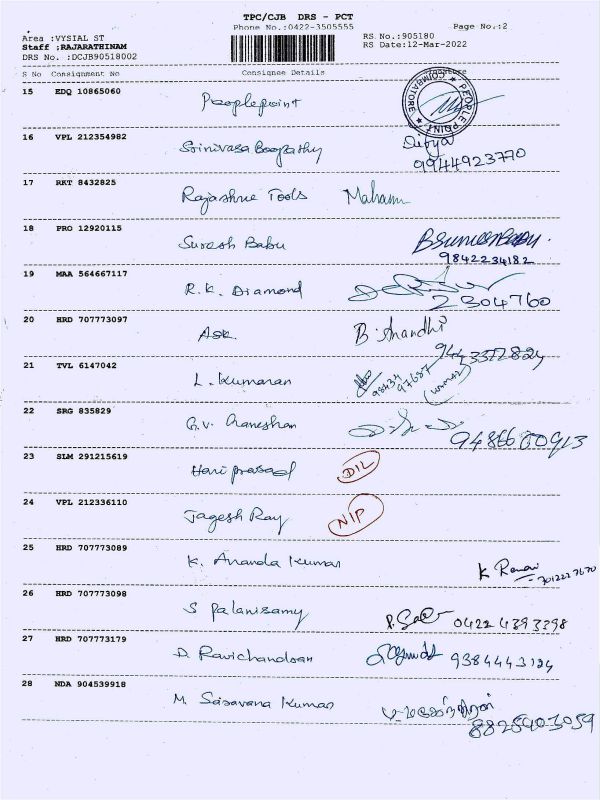 TPC/CJB DRS - PCT
Phone No.:0422-3505555
Page No.:2
Area :VYSIAL ST
RS No.:905180
Staff :RAJARATHINAM
RS Date:12-Mar-2022
DRS No. :DCJB90518002
S No Consignment No Consignee Details
15 EDQ 10865060 Peoplepoint
PEOPLE POINT ★ COIMBATORE ★
16 VPL 212354982 Srinivasa Boopathy Divya
9944923770
17 RKT 8432825 Rajashree Tools
18 PRO 12920115 Suresh Babu B Suresh Babu
9842234182
19 MAA 564667117 R.K. Diamond
2304760
20 HRD 707773097 Ask B. Anandhi
21 TVL 6147042 L. Kumaran
22 SRG 835829 G.V. Ganeshan
23 SLM 291215619 Hari prasad DIL
24 VPL 212336110 Jagesh Ray NIP
25 HRD 707773089 K. Ananda Kumar
26 HRD 707773098 S Palanisamy 0422 4393398
27 HRD 707773179 D. Ravichandran 9384443124
28 NDA 904539918 M. Saravana Kumar
8825903059